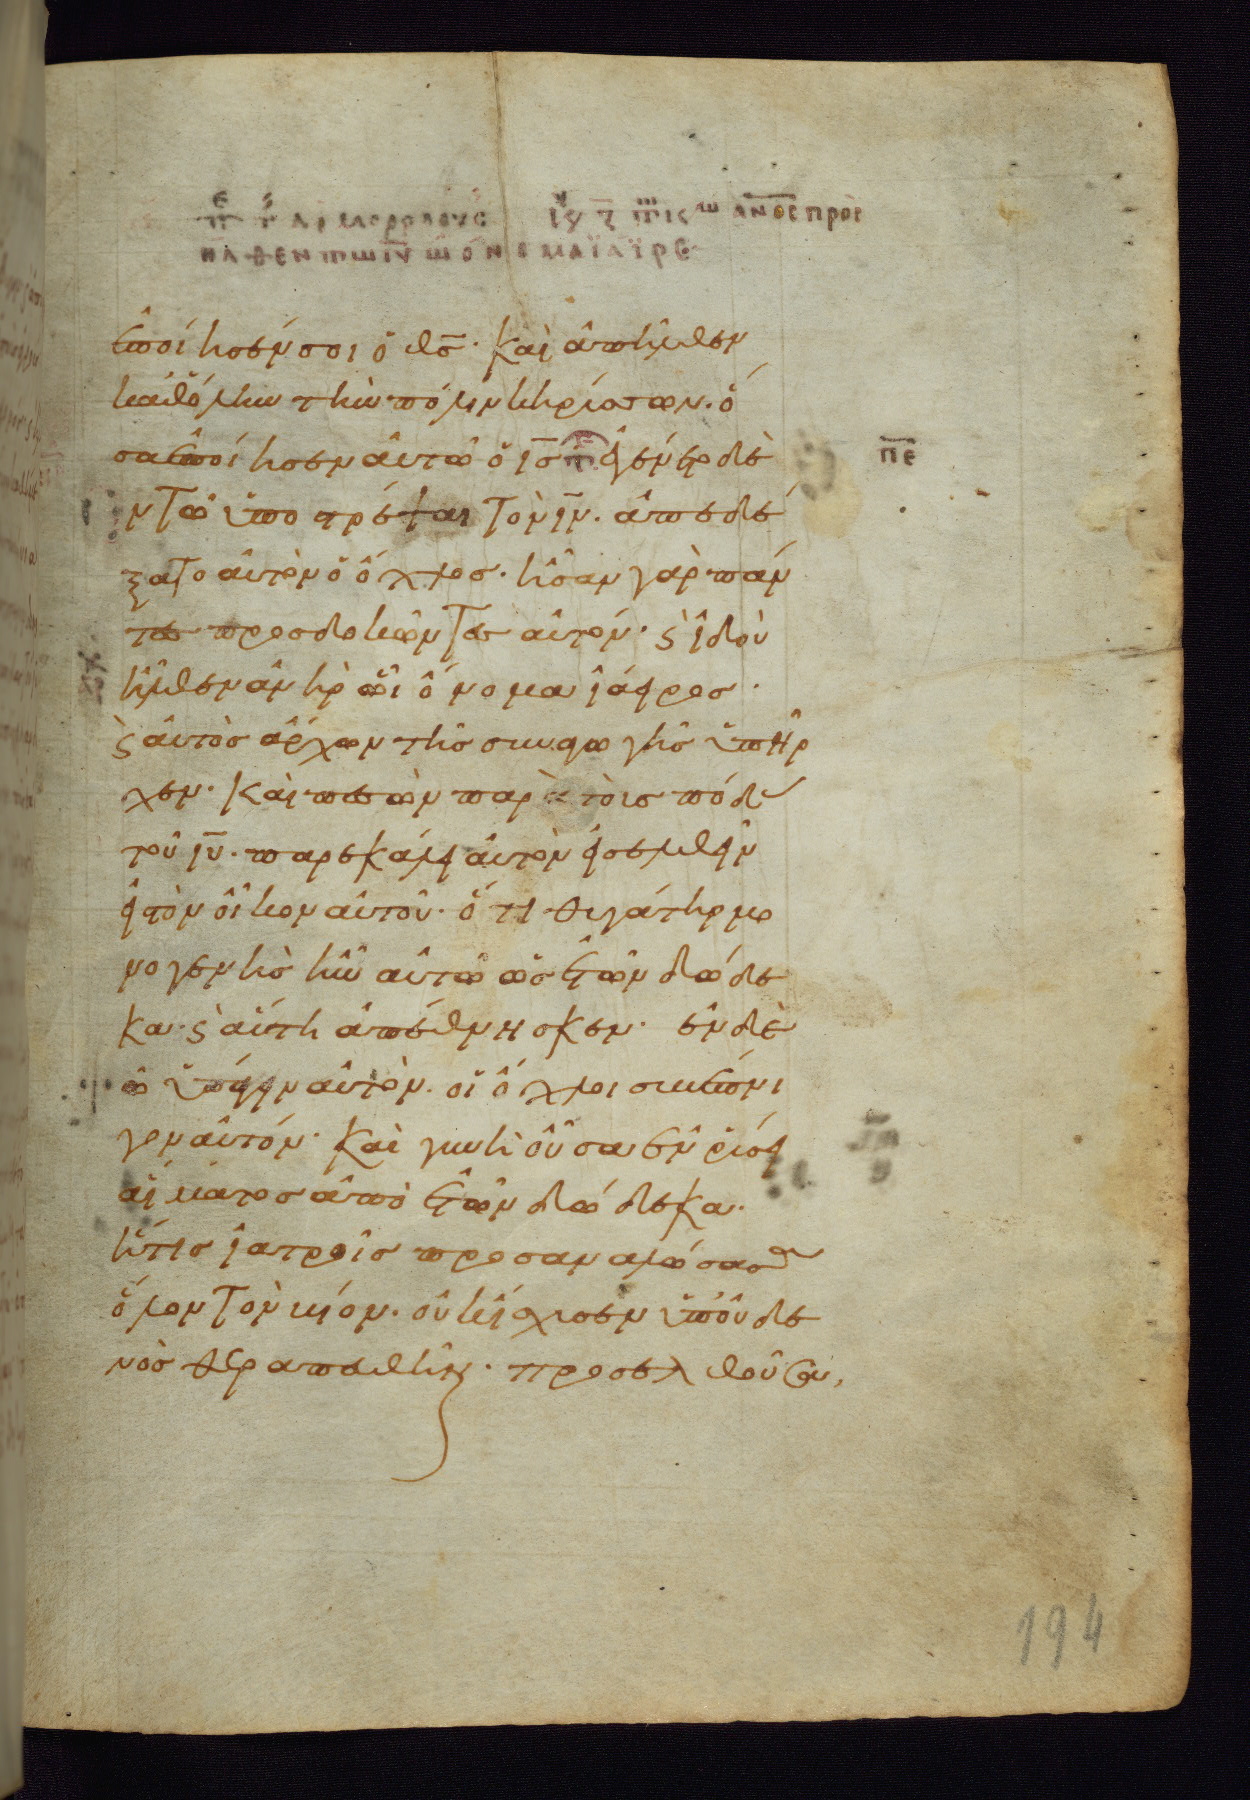 ΑΝΟΣ ΠΡΟΣ
ΗΛΘΕΝ ΤΩ ΙΥ Ω ΟΝΟΜΑ ΪΑΪΡΕ
ἐποίησέν σοι ὁ θς̄· καὶ ἀπῆλθεν
καθόλην τὴν πόλιν κηρύσσων· ὅ
σα ἐποίησεν αὐτῶ ὁ ις̄ ἐγένετο δὲ ἐ
πε
ν τῶ ὑποστρέψαι τὸν ιν̄· ἀπεδέ
ξατο αὐτὸν ὁ ὄχλος· ἦσαν γὰρ πάν
τες προσδοκῶντες αὐτόν· ϛ ἰδοὺ
ἦλθεν ἀνὴρ ὧι ὄνομα ἰάειρος·
ϛ αὐτὸς ἄρχων τῆς συναγωγῆς ὑπῆρ
χεν· καὶ πεσὼν παρὰ τοὺς πόδας
τοῦ ιῡ· παρεκάλει αὐτὸν εἰσελθεῖν
εἰς τὸν οἶκον αὐτοῦ· ὅτι θυγάτηρ μο
νογενὴς ἦν αὐτῶ ὡς ἐτῶν δώδε
κα· ϛ αὕτη ἀπέθνησκεν· ἐν δὲ τ
ῶ ὑπάγειν αὐτὸν· οἱ ὄχλοι συνέπνι
γον αὐτόν· καὶ γυνὴ οὖσα ἐν ῥύσει
αἵματος ἀπὸ ἐτῶν δώδεκα·
ἥτις ἰατροῖς προσαναλώσασα
ὅλον τὸν βίον· οὐκ ἴσχυσεν ὑπ' οὐδε
νὸς θεραπευθῆναι· προσελθοῦσα,
194